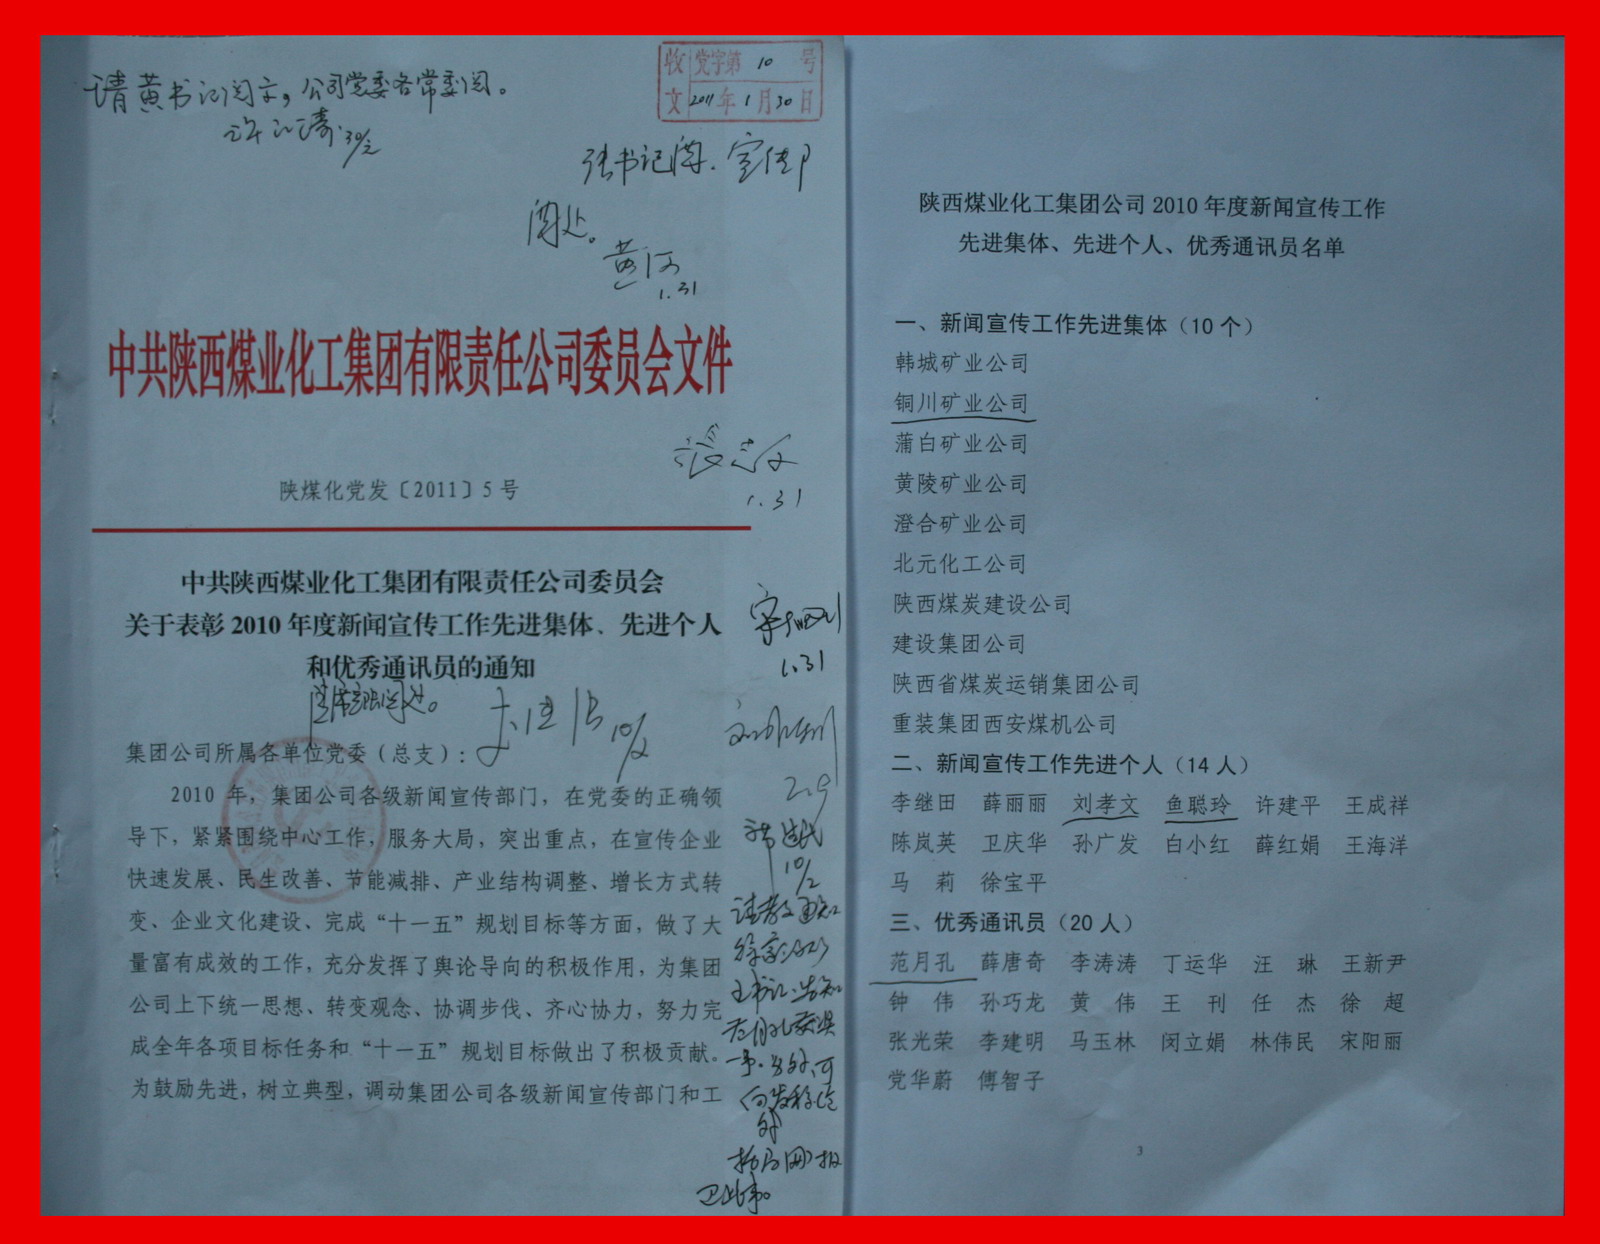 收 党字第 10 号
文 2011年 1月 30日
请黄书记阅示，公司党委各常委阅。
30/元
张书记阅、宣传部
阅处。
黄河
1.31
中共陕西煤业化工集团有限责任公司委员会文件
1.31
陕煤化党发〔2011〕5号
中共陕西煤业化工集团有限责任公司委员会
关于表彰 2010 年度新闻宣传工作先进集体、先进个人
和优秀通讯员的通知
1.31
10/2
集团公司所属各单位党委（总支）：
2010 年，集团公司各级新闻宣传部门，在党委的正确领
导下，紧紧围绕中心工作，服务大局，突出重点，在宣传企业
快速发展、民生改善、节能减排、产业结构调整、增长方式转
变、企业文化建设、完成“十一五”规划目标等方面，做了大
量富有成效的工作，充分发挥了舆论导向的积极作用，为集团
公司上下统一思想、转变观念、协调步伐、齐心协力，努力完
成全年各项目标任务和“十一五”规划目标做出了积极贡献。
为鼓励先进，树立典型，调动集团公司各级新闻宣传部门和工
2.9
10/2
陕西煤业化工集团公司 2010 年度新闻宣传工作
先进集体、先进个人、优秀通讯员名单
一、新闻宣传工作先进集体（10 个）
韩城矿业公司
铜川矿业公司
蒲白矿业公司
黄陵矿业公司
澄合矿业公司
北元化工公司
陕西煤炭建设公司
建设集团公司
陕西省煤炭运销集团公司
重装集团西安煤机公司
二、新闻宣传工作先进个人（14 人）
李继田 薛丽丽 刘孝文 鱼聪玲 许建平 王成祥
陈岚英 卫庆华 孙广发 白小红 薛红娟 王海洋
马 莉 徐宝平
三、优秀通讯员（20 人）
范月孔 薛唐奇 李涛涛 丁运华 汪 琳 王新尹
钟 伟 孙巧龙 黄 伟 王 刊 任 杰 徐 超
张光荣 李建明 马玉林 闵立娟 林伟民 宋阳丽
党华蔚 傅智子
3